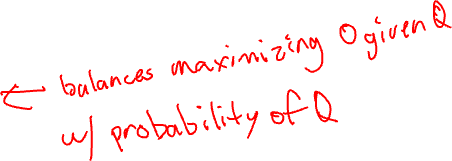 ← balances maximizing O given Q
w/ probability of Q